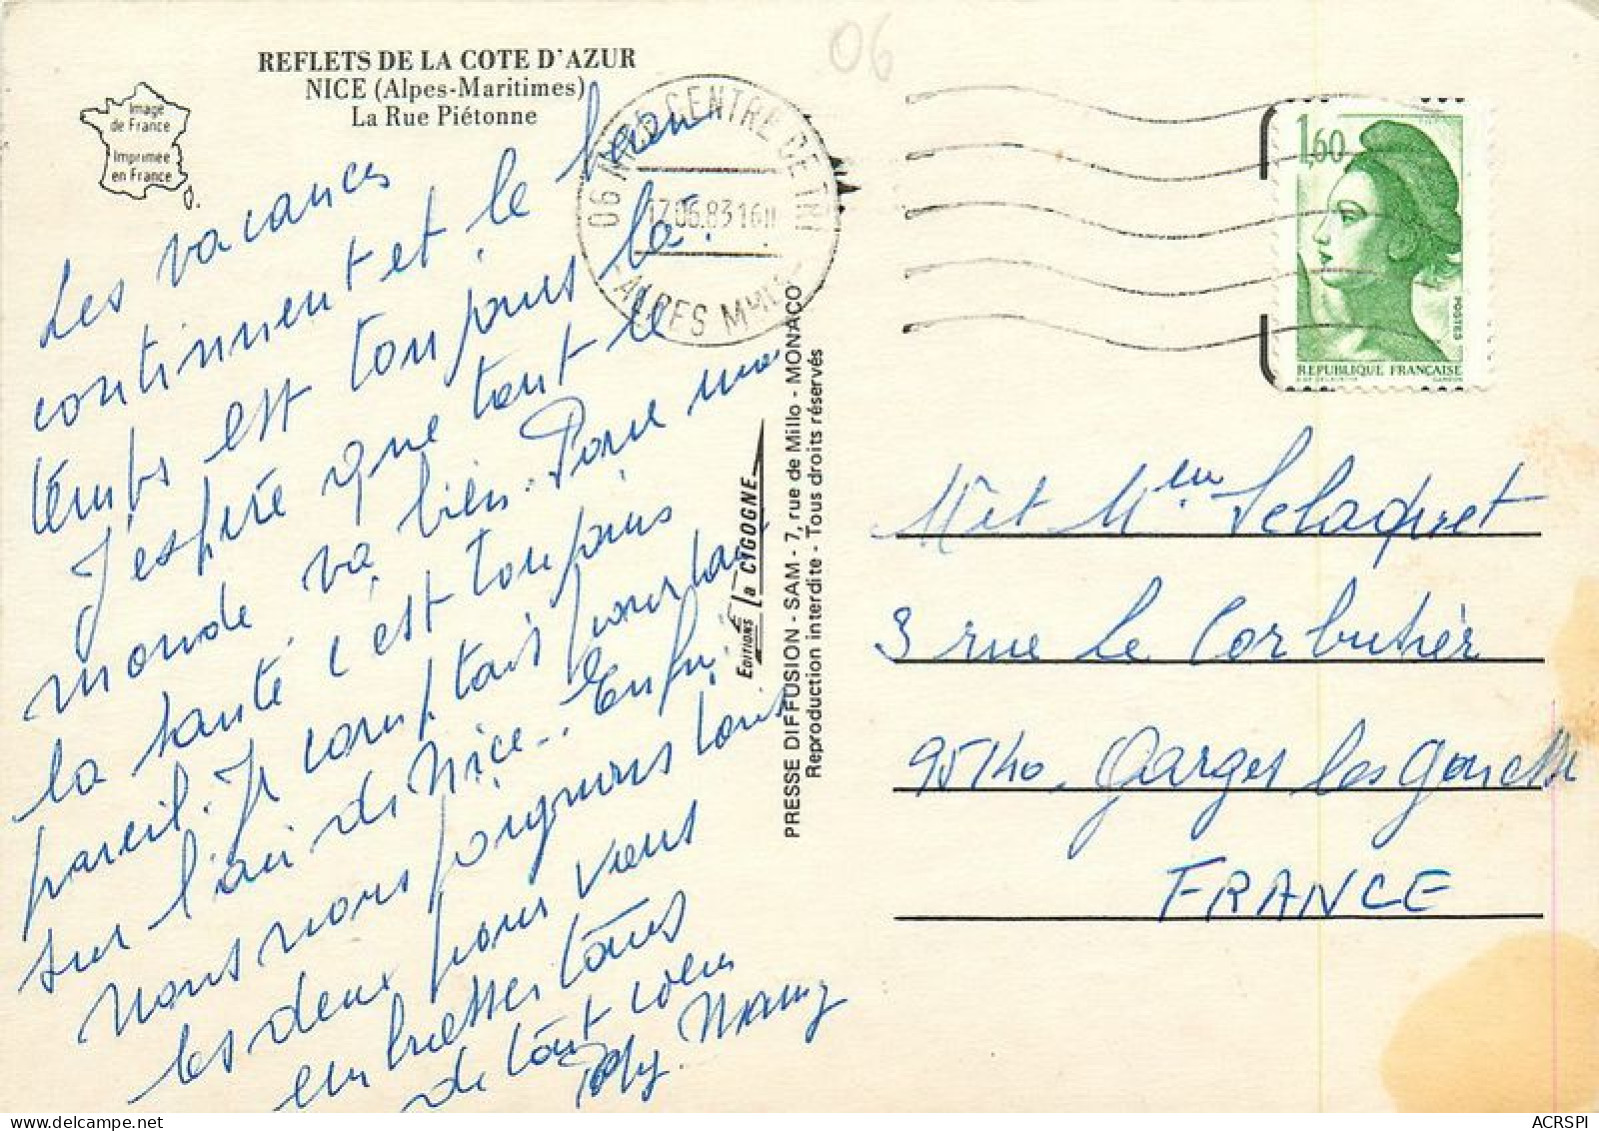 REFLETS DE LA COTE D'AZUR
NICE (Alpes-Maritimes)
La Rue Piétonne
Image
de France
Imprimée
en France
06
06 NICE CENTRE CE TRI
17.06.83 16H
-ALPES MMES-
1,60
POSTES
REPUBLIQUE FRANÇAISE
Les vacances
continuent et le beau
temps est toujours là.
J'espère que tout le
monde va bien. Pour moi
la santé c'est toujours
pareil. Je comptais pour ça
sur l'air de Nice... Enfin.
Nous nous joignons tous
les deux pour vous
embrasser tous
de tout coeur
Many
EDITIONS la CIGOGNE
PRESSE DIFFUSION - SAM - 7, rue de Millo - MONACO
Reproduction interdite - Tous droits réservés
M et Mem Delaquet
3 rue Le Corbusier
95140. Garges les Gonesse
FRANCE
ACRSPI